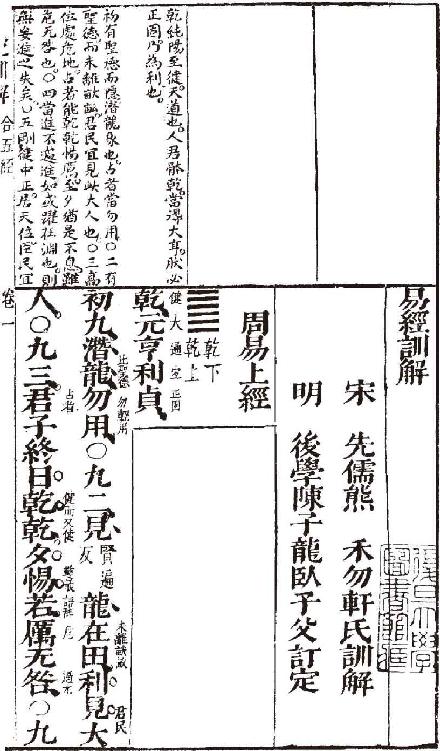 易經訓解
宋 先儒熊 禾勿軒氏訓解
明 後學陳子龍臥子父訂定
周易上經
乾下
乾上
健 大 通 宜 正固
乾、元亨利貞、
初九、潛龍勿用、○九二、見 賢遍反 龍在田、利見大
人、○九三、君子終日乾乾、夕惕若、厲无咎、○九
未離畎畝
君民
占者
乾純陽至健天道也人君骵乾當淂大亨肰必
正固乃為利也。
初有聖德而隱潛龍象也占者當勿用。○二有
聖德而未離畎畝君民宜見此大人也。○三高
位處危地占者能乾乾惕厲至夕猶是不息雖
危无咎也。○四當進不遽進如或躍在淵也則
無妄進之失矣。○五剛健中正居天位臣民宜
訓解 合五經
卷一
大學
圖書館